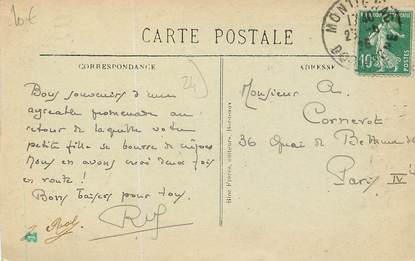 10€
CARTE POSTALE
CORRESPONDANCE
ADRESSE
24
Bons souvenirs d'une
agréable promenade au
retour de laquelle votre
petite fille se bourre de mûres
Nous en avons deux fois
en route !
Bons baisers pour tous
Bloc Frères, éditeurs, Bordeaux
Monsieur A.
Cornerot
36 Quai de Béthune
Paris IV
MONTI
10
POSTES